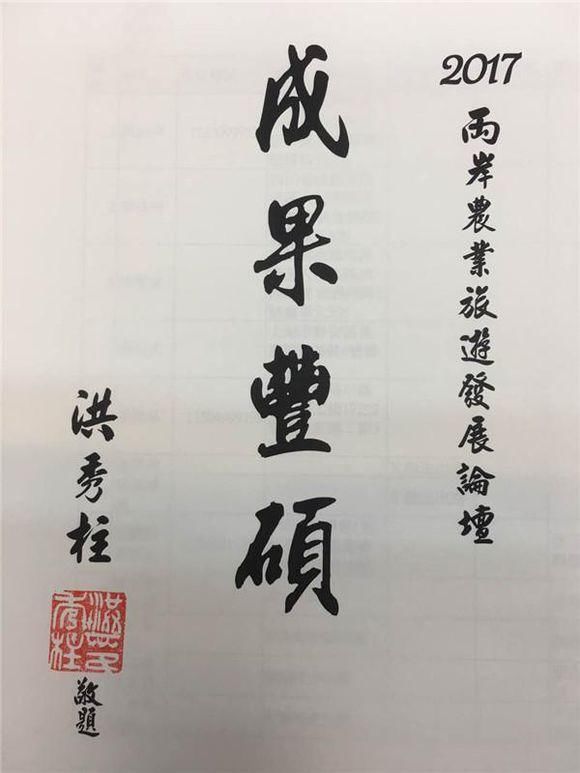 2017
兩岸農業旅遊發展論壇
成果豐碩
洪秀柱
敬題